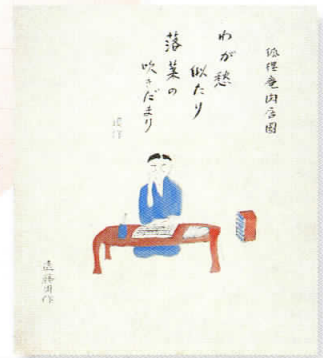 狐狸庵図
わが愁
似たり
落葉の
吹きだまり
遠藤周作